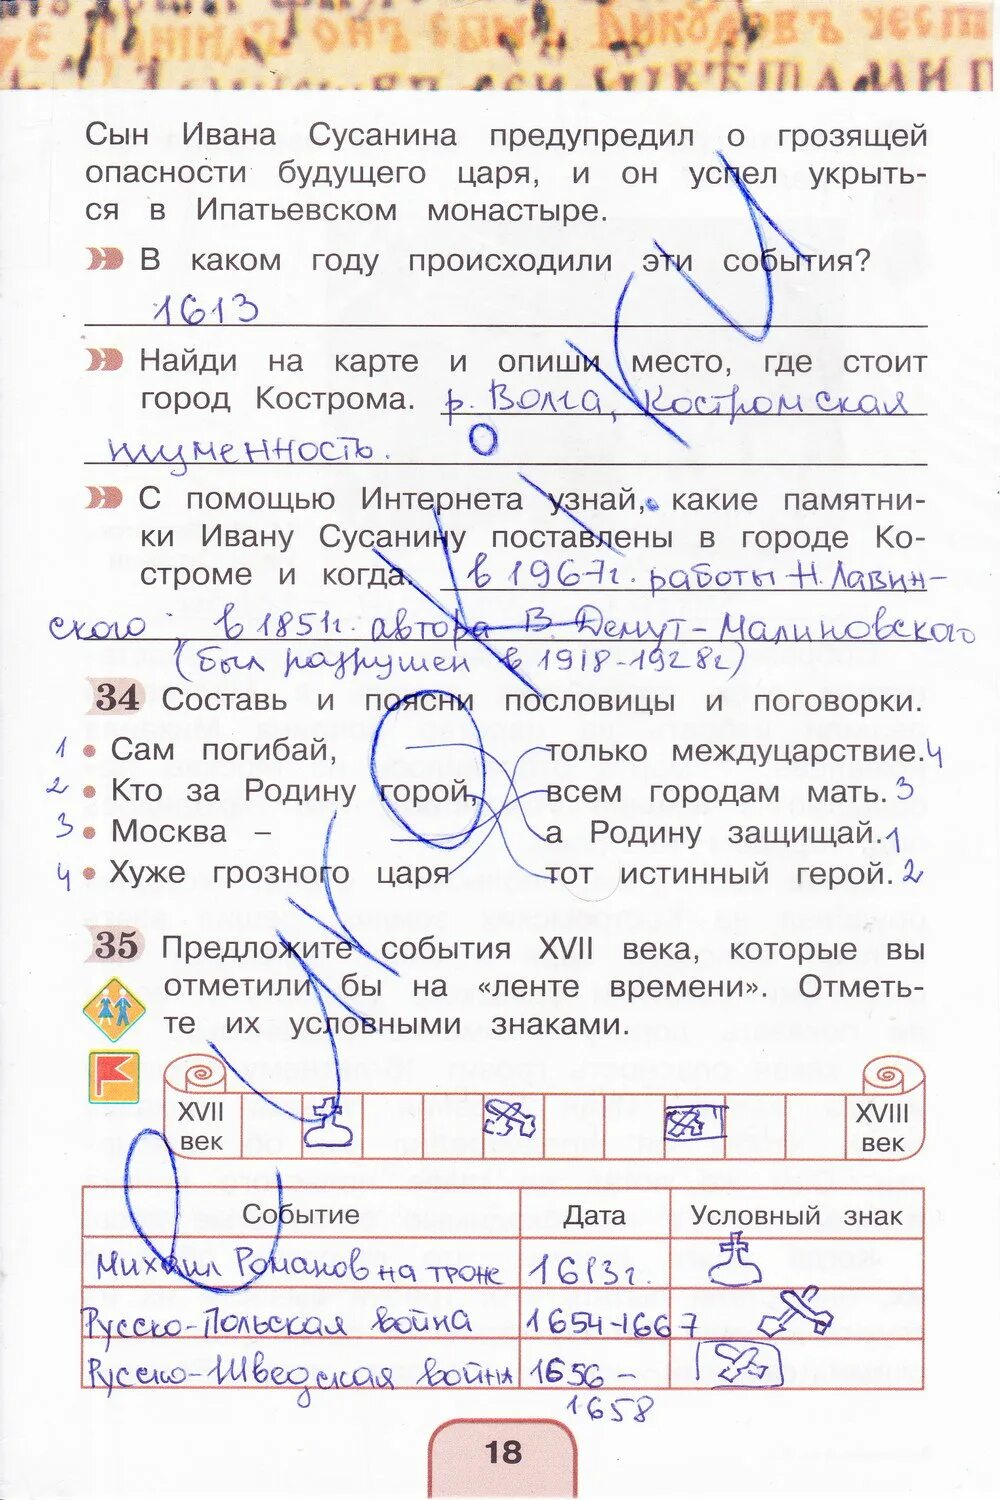 Сын Ивана Сусанина предупредил о грозящей
опасности будущего царя, и он успел укрыть-
ся в Ипатьевском монастыре.
В каком году происходили эти события?
1613
Найди на карте и опиши место, где стоит
город Кострома. р. Волга, Костромская
С помощью Интернета узнай, какие памятни-
ки Ивану Сусанину поставлены в городе Ко-
строме и когда. в 1967г. работы Н. Лавин-
ского, в 1851г. автора В. Демут-Малиновского
(был разрушен в 1918-1928г)
34 Составь и поясни пословицы и поговорки.
1 • Сам погибай, только междуцарствие. 4
2 • Кто за Родину горой, всем городам мать. 3
3 • Москва – а Родину защищай. 1
4 • Хуже грозного царя тот истинный герой. 2
35 Предложите события XVII века, которые вы
отметили бы на «ленте времени». Отметь-
те их условными знаками.
XVII век XVIII век
Событие Дата Условный знак
Михаил Романов на троне 1613г.
Русско-Польская война 1654-1667
Русско-Шведская война 1656 -
1658
18